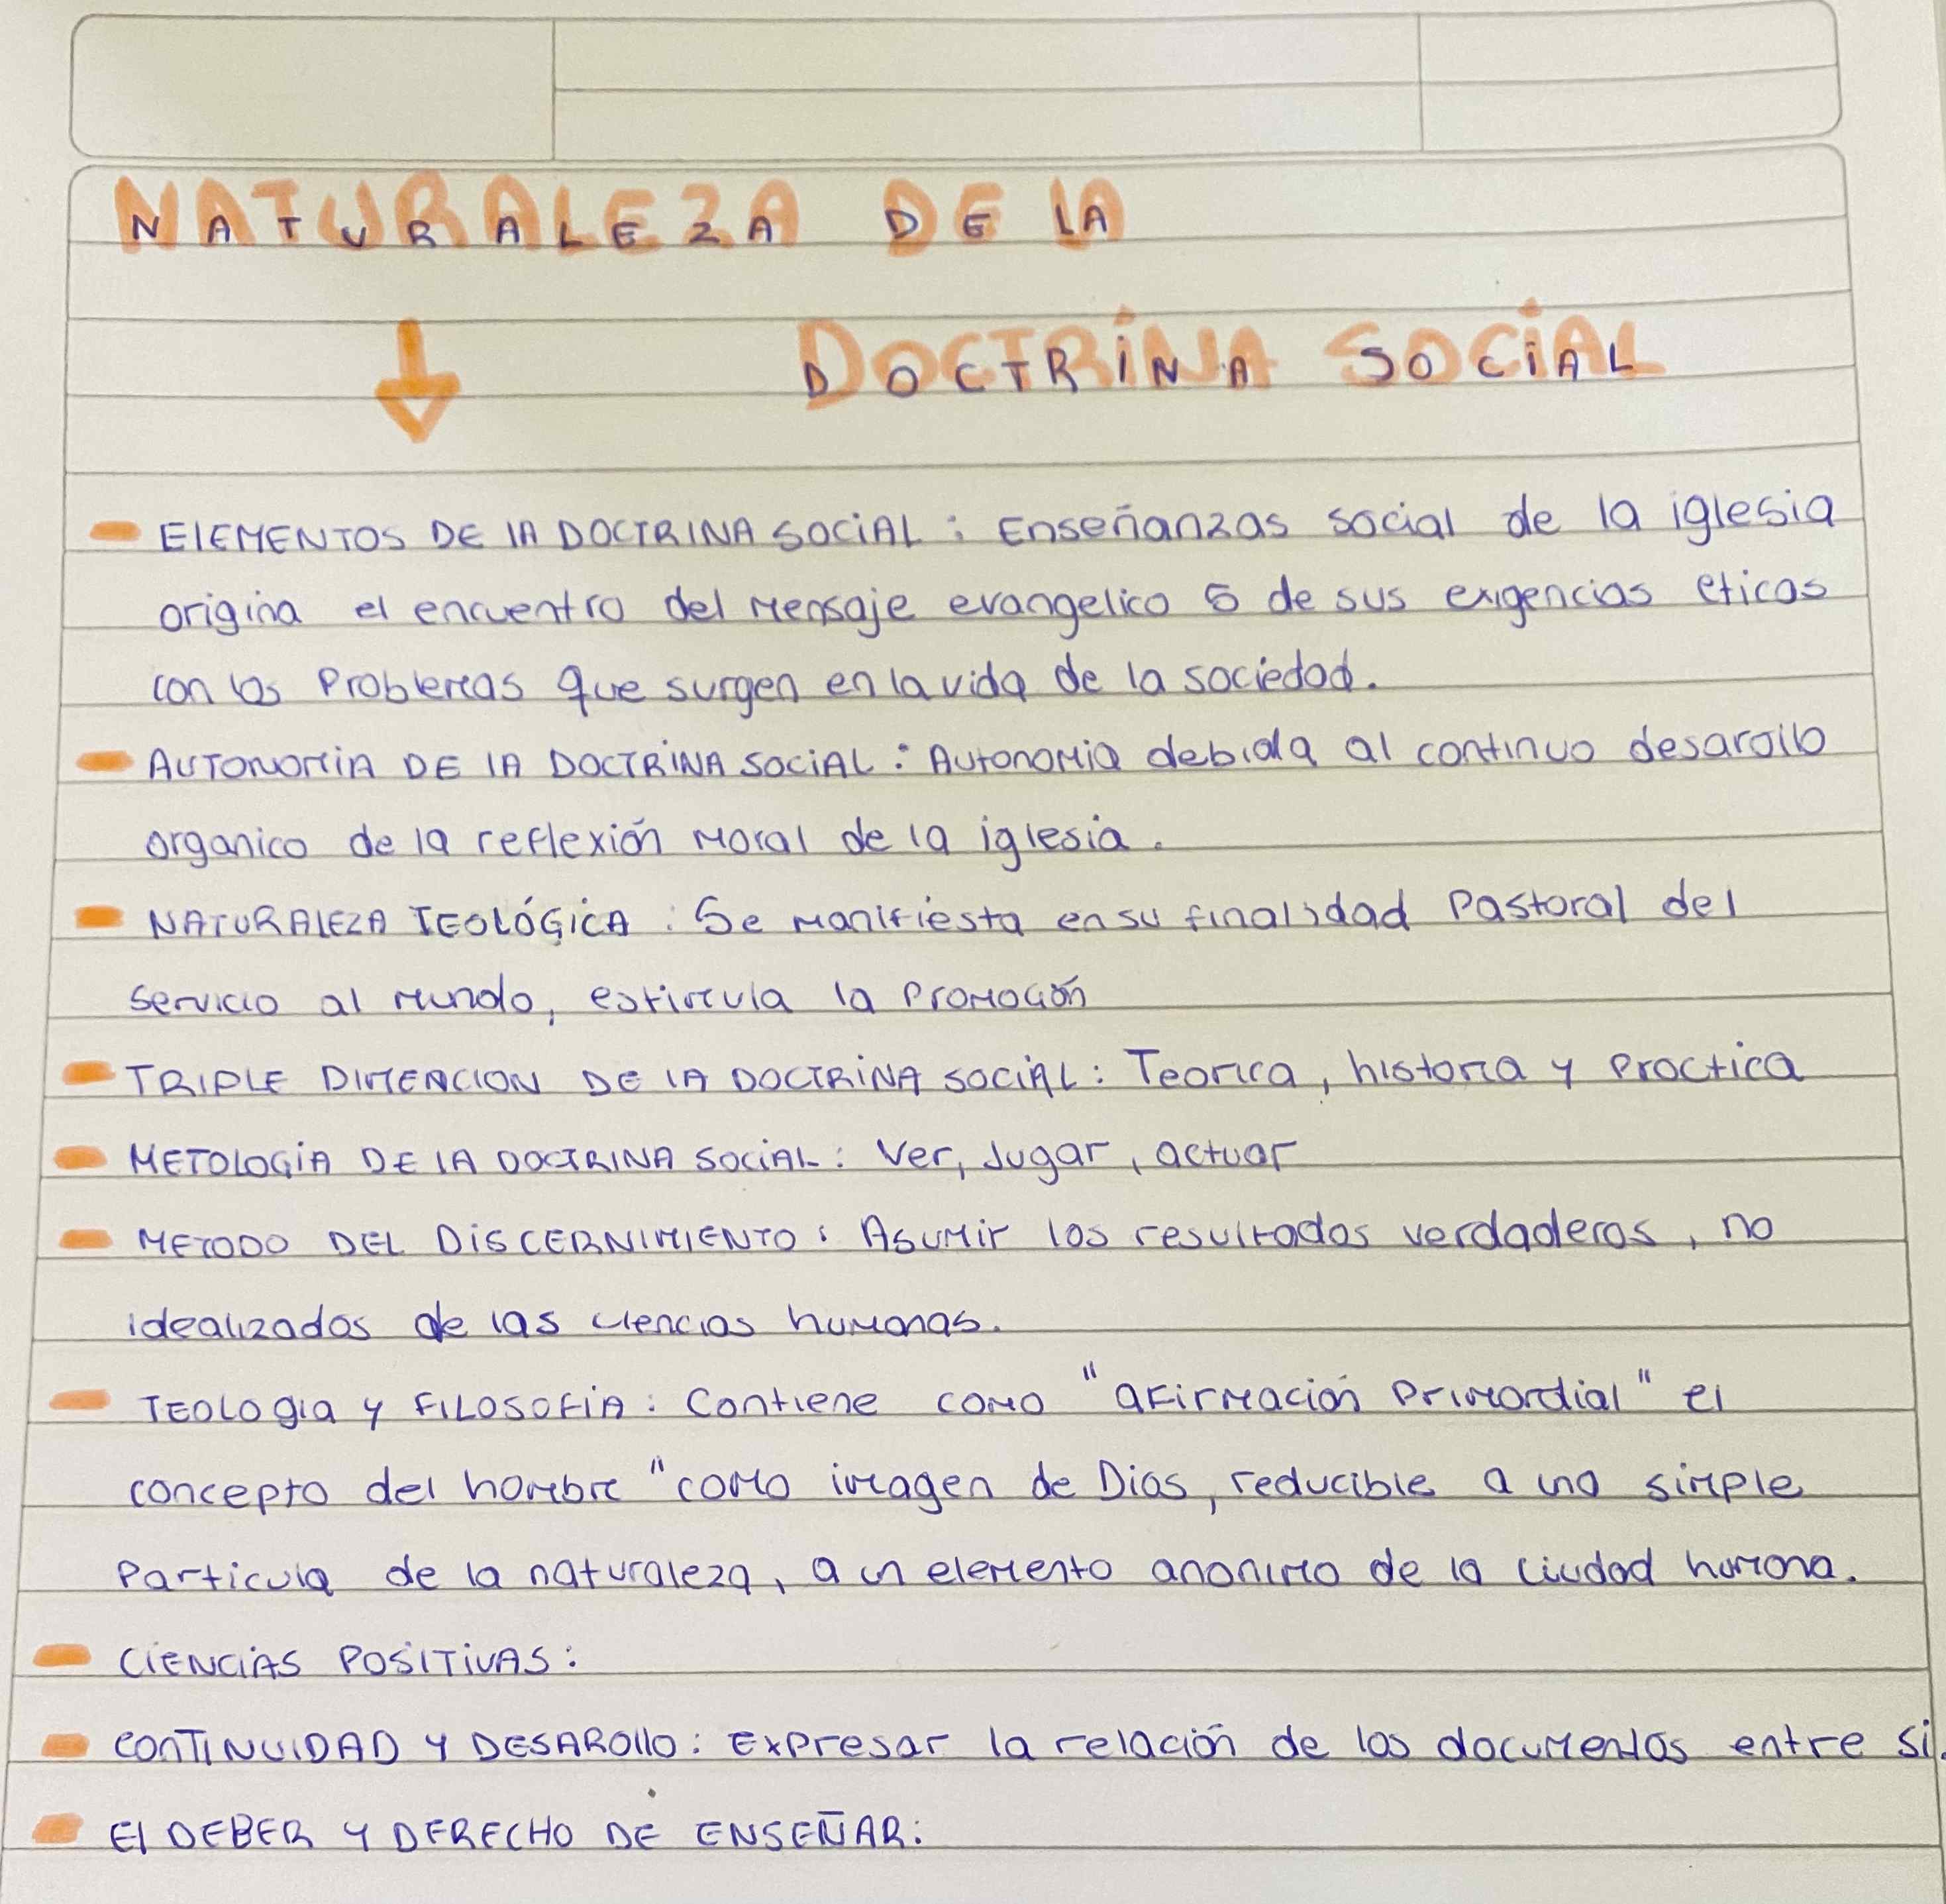 NATURALEZA DE LA
DOCTRINA SOCIAL
ElEMENTOS DE lA DOCTRINA SOCiAL : Enseñanzas social de la iglesia
origina el encuentro del Mensaje evangelico de sus exigencias eticas
con los Problemas que surgen en la vida de la sociedad.
AUTONOMiA DE lA DOCTRiNA SOCiAL : AutonoMia debida al continuo desarollo
organico de la reflexión Moral de la iglesia.
NATURAlEZA TEOLÓGiCA : Se Manifiesta en su finalidad Pastoral del
servicio al Mundo, estimula la PROMOción
TRIPLE DIMENCION DE lA DOCTRiNA SOCiAL : Teorica, historia y Practica
METOLOGiA DE lA DOCTRINA SOCiAL : Ver, Jugar, actuar
METODO DEL DiSCERNIMIENTO : ASUMir los resultados verdaderos, no
idealizados de las ciencias huManas.
TEOLOgia y FiLOSOFiA : Contiene coMo "aFirMación PriMordial" el
concepto del hombre "coMo imagen de Dios, reducible a una simple
Particula de la naturaleza, a un eleMento anoniMo de la ciudad humana.
CiENCiAS POSiTiVAS :
CONTINUIDAD Y DESAROllO : Expresar la relación de los docuMentos entre si.
El DEBER Y DERECHO DE ENSEÑAR :